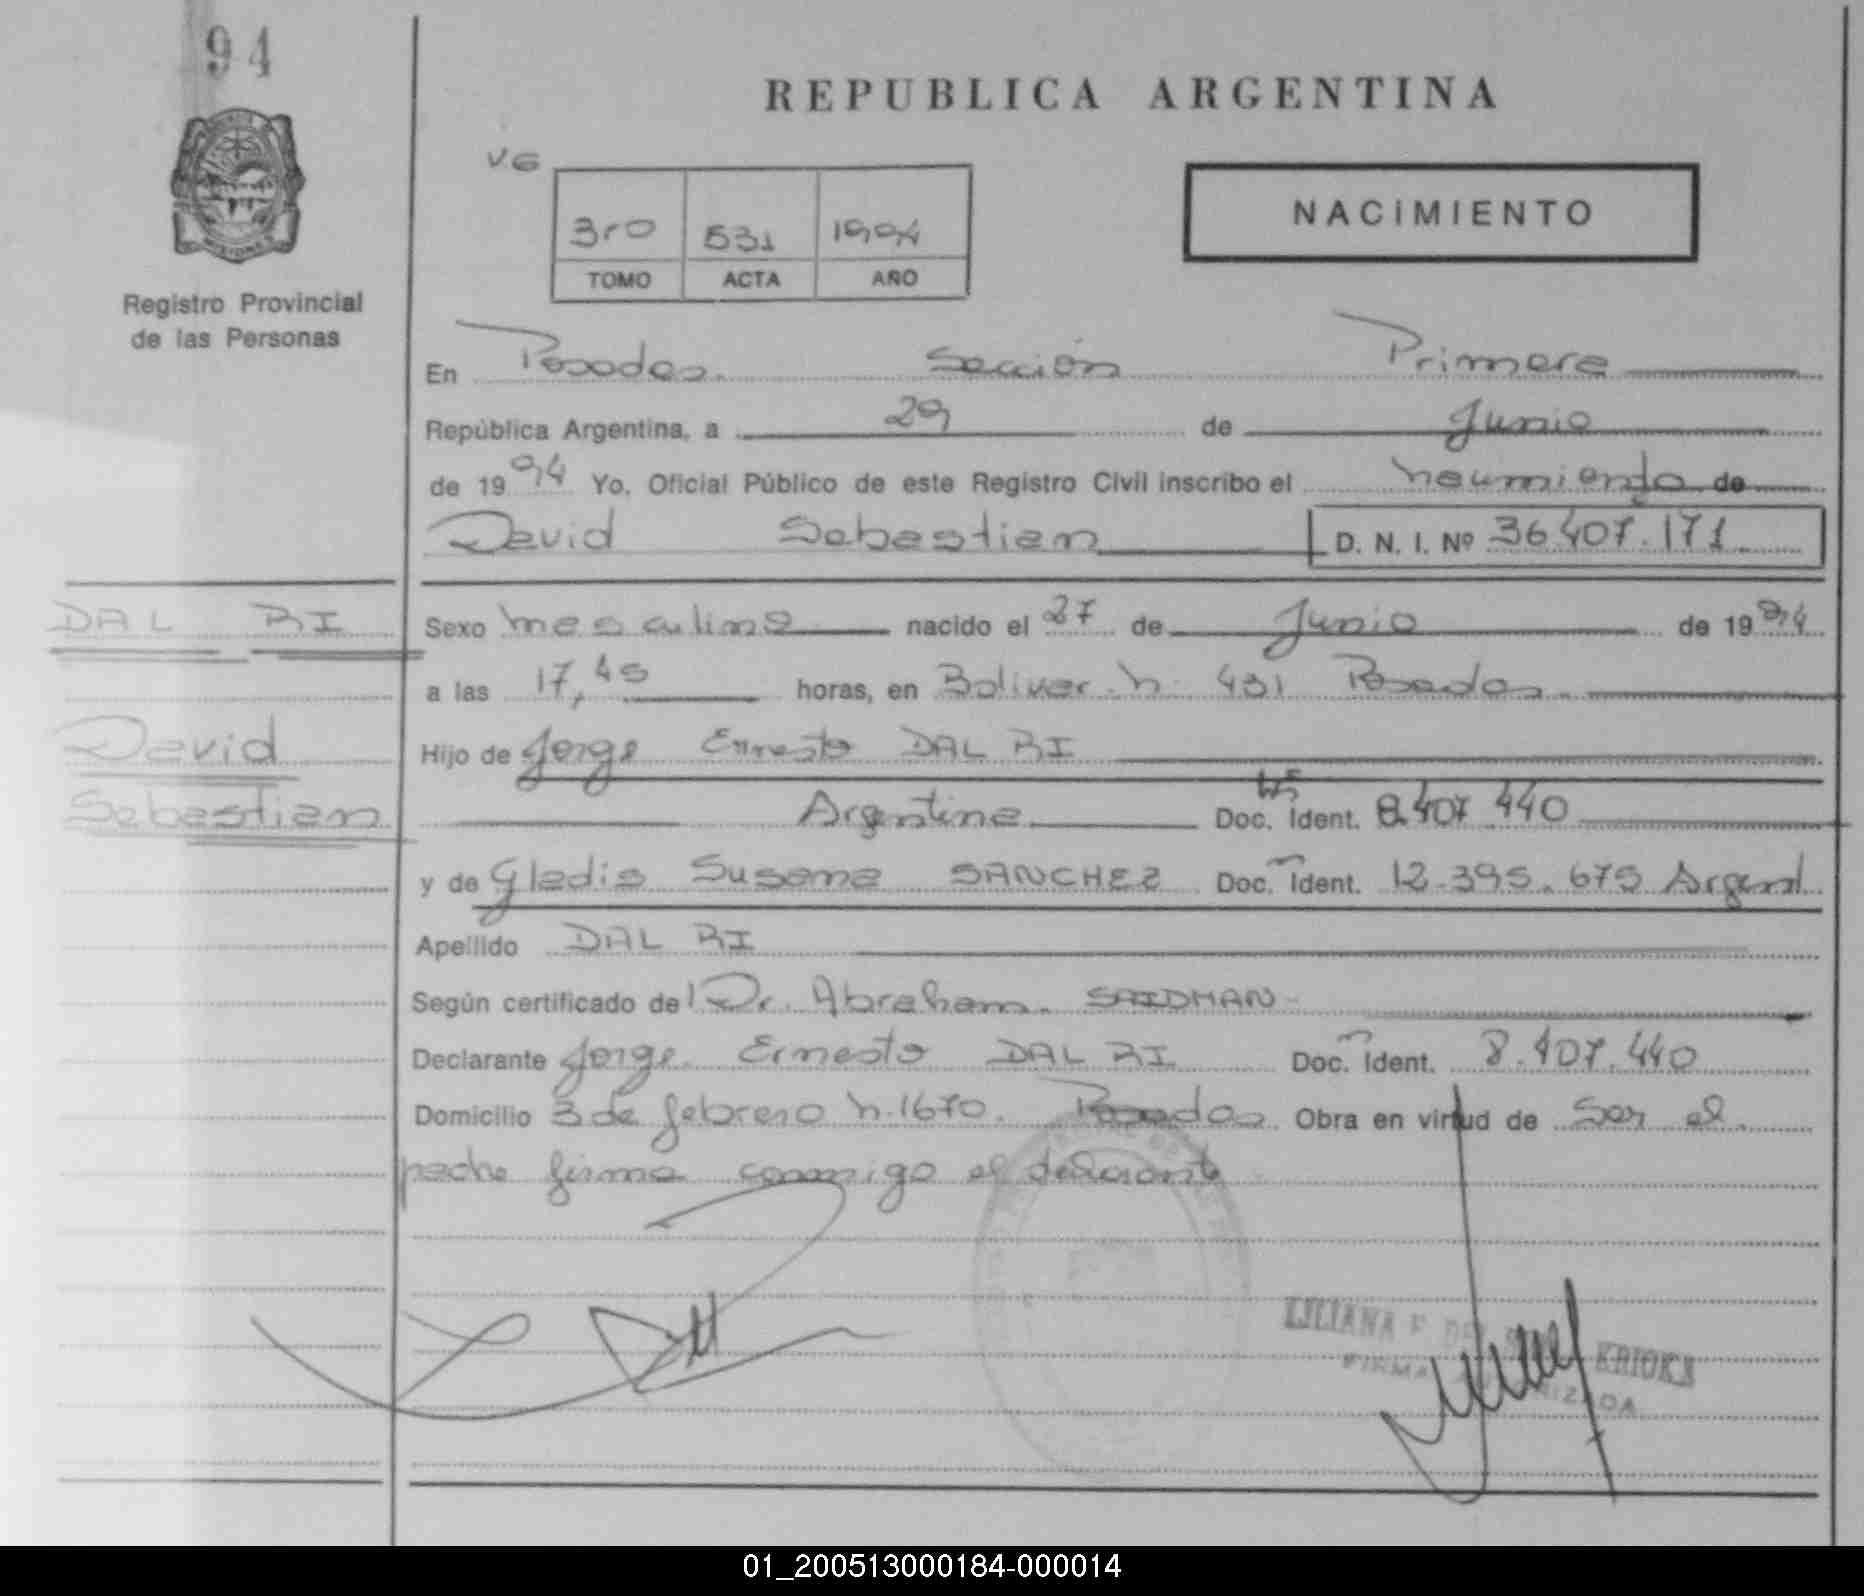 94
REPUBLICA ARGENTINA
VG
3ro 531 1994
TOMO ACTA AÑO
NACIMIENTO
MISIONES
Registro Provincial
de las Personas
En Posadas. Sección Primera
República Argentina, a 29 de Junio
de 1994 Yo, Oficial Público de este Registro Civil inscribo el nacimiento de
David Sebastian D. N. I. Nº 36.407.171
DAL RI
Sexo masculino nacido el 27 de Junio de 1994
a las 17,45 horas, en Bolivar n. 431 Posadas.
David
Hijo de Jorge Ernesto DAL RI
Sebastian
Argentino Doc. Ident. 8.407.440
y de Gladis Susana SANCHEZ Doc. Ident. 12.395.675 Argent
Apellido DAL RI
Según certificado de Dr. Abraham SAIDMAN
Declarante Jorge Ernesto DAL RI Doc. Ident. 8.407.440
Domicilio 3 de febrero n. 1670. Posadas. Obra en virtud de Ser el
padre firma conmigo el declarante
LILIANA
FIRMA AUTORIZADA
01_200513000184-000014